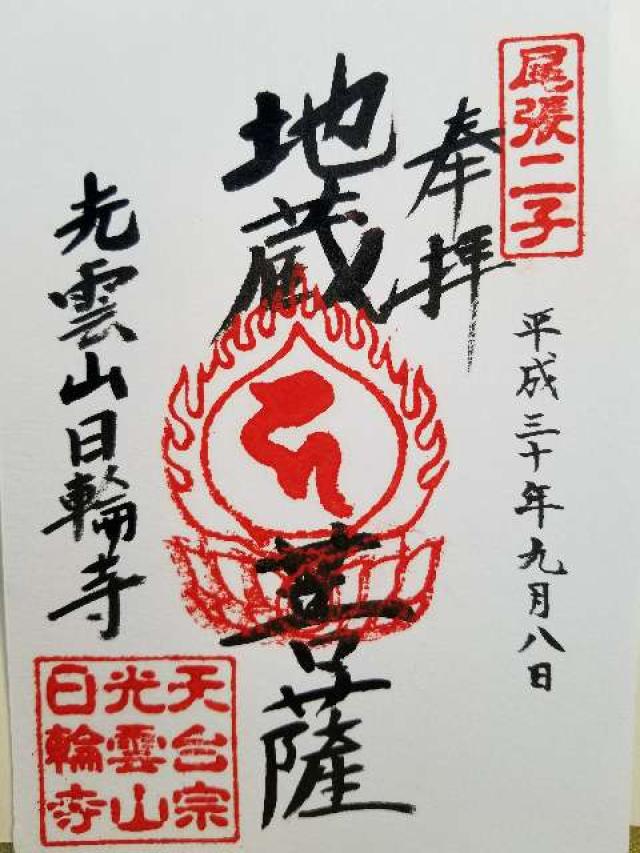 尾張二子
奉拝
平成三十年九月八日
地蔵菩薩
光雲山日輪寺
天台宗
光雲山
日輪寺